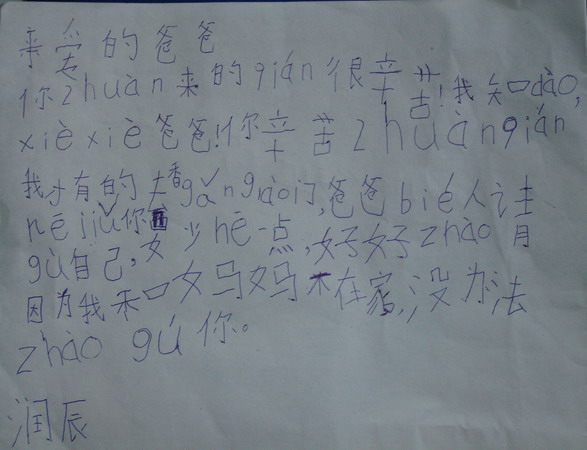 亲爱的爸爸
你zhuàn来的qián很辛苦!我知dào,
xièxiè爸爸!你辛苦zhuànqián
我才有的去香gǎng门,爸爸bié人请
hē jiǔ你要少hē一点,好好zhào
gù自己,
因为我和妈妈不在家,没办法
zhào gú你。
润辰